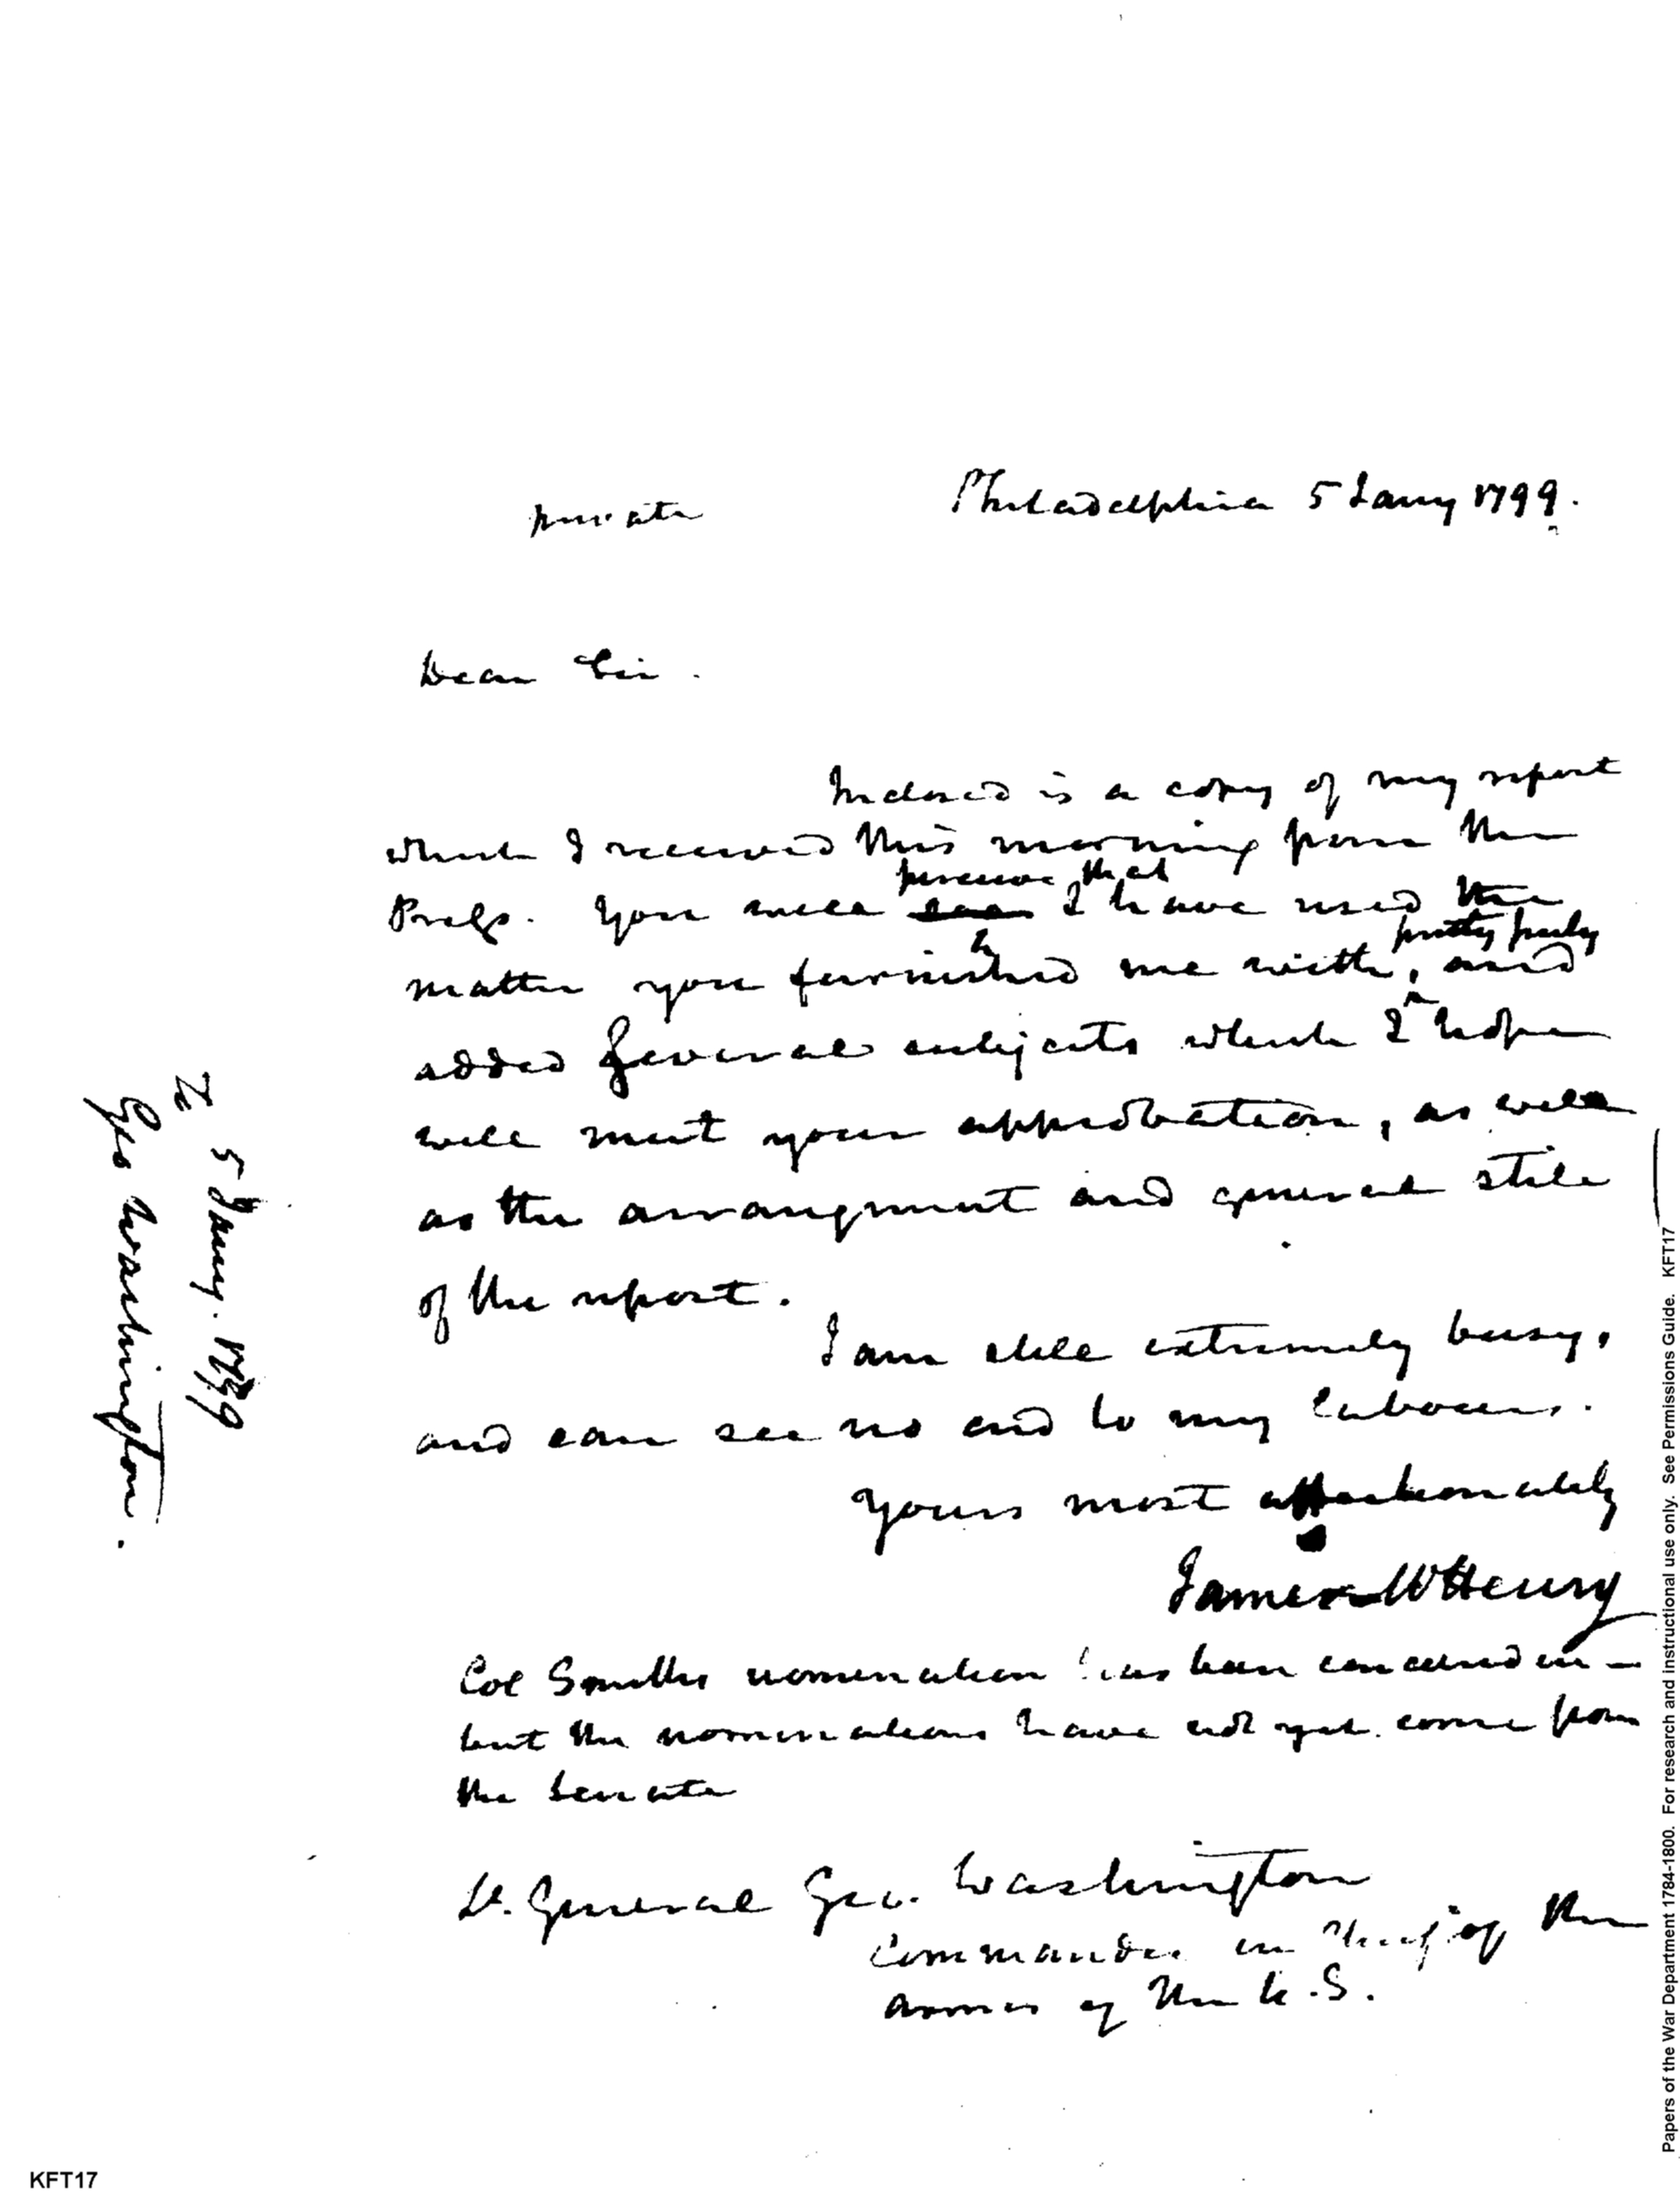 private
Philadelphia 5 Jany 1799.
Dear Sir.
Inclosed is a copy of my report
which I received this morning from the
perceive that
Presp. You will see I have used the
pretty freely
matter you furnished me with, and
added several subjects which I hope
will meet your approbation, as well
as the arrangment and general stile
of the report.
I am still extremely busy,
and can see no end to my labours.
Yours most affectionately
James McHenry
Col Smiths nomination has been concurred in —
but the nominations have not yet come from
the Senate
Lt. General Geo. Washington
Commander in Chief of the
armies of the U.S.
To
5 Jany. 1799
Geo Washington.
KFT17
Papers of the War Department 1784-1800. For research and instructional use only. See Permissions Guide. KFT17